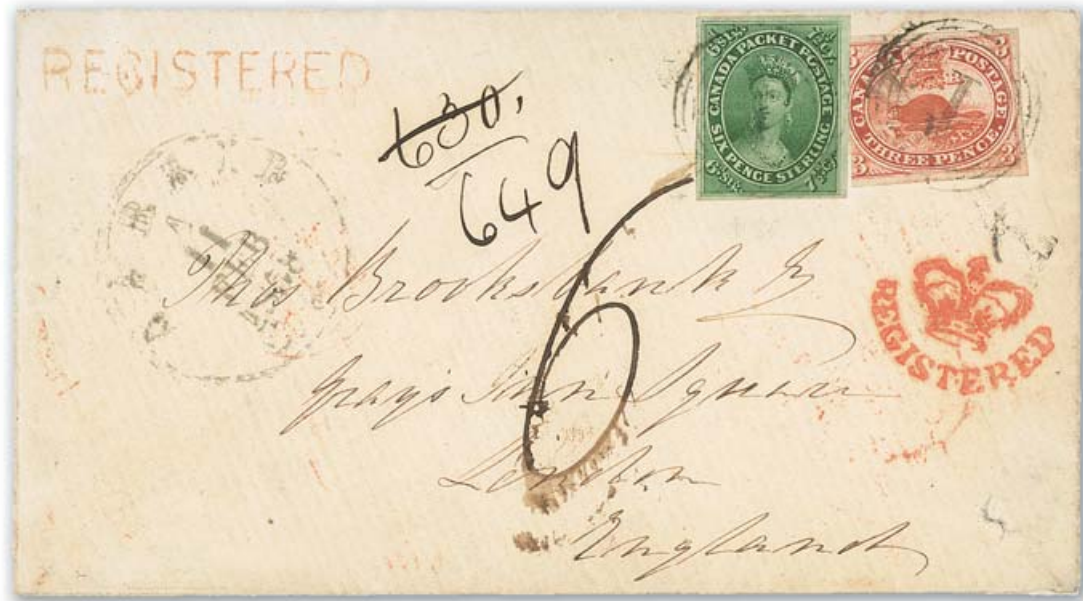 REGISTERED
630.
649
6 Stg. 7½ Cy.
CANADA PACKET POSTAGE
SIX PENCE STERLING
6 Stg. 7½ Cy.
3 3
CANADA POSTAGE
THREE PENCE.
3 3
6
Thos Brooksbank
Grays Inn Square
London
England
REGISTERED